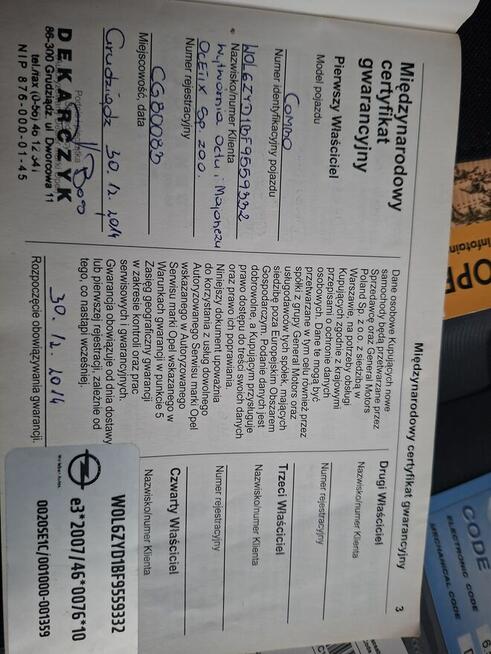 Międzynarodowy certyfikat gwarancyjny
3
Międzynarodowy
certyfikat
gwarancyjny
Pierwszy Właściciel
Model pojazdu
COMBO
Numer identyfikacyjny pojazdu
W0L6ZYD1BF9559332
Nazwisko/numer Klienta
Wytwórnia Octu i Majonezu
OCETIX Sp. z o.o.
Numer rejestracyjny
CG80083
Miejscowość, data
Grudziądz 30.12.2014
DEKARCZYK
86-300 Grudziądz, ul Dworcowa 11
NIP 876-000-01-45
Dane osobowe Kupujących nowe
samochody będą przetwarzane przez
Sprzedawcę oraz General Motors
Poland Sp. z o.o. z siedzibą w
Warszawie na potrzeby obsługi
Kupujących zgodnie z krajowymi
przepisami o ochronie danych
osobowych. Dane te mogą być
przetwarzane w tym celu również przez
spółki z grupy General Motors oraz
usługodawców tych spółek, mających
siedzibę poza Europejskim Obszarem
Gospodarczym. Podanie danych jest
dobrowolne, a Kupującym przysługuje
prawo dostępu do treści swoich danych
oraz prawo ich poprawiania.
Niniejszy dokument upoważnia
do korzystania z usług dowolnego
Autoryzowanego Serwisu marki Opel
wskazanego w Autoryzowanego
Serwisu marki Opel wskazanego w
Warunkach gwarancji w punkcie 5
Zasięg geograficzny gwarancji
w zakresie kontroli oraz prac
serwisowych i gwarancyjnych.
Gwarancja obowiązuje od dnia dostawy
lub pierwszej rejestracji, zależnie od
tego, co nastąpi wcześniej.
30.12.2014
Rozpoczęcie obowiązywania gwarancji.
Drugi Właściciel
Nazwisko/numer Klienta
Numer rejestracyjny
Trzeci Właściciel
Nazwisko/numer Klienta
Numer rejestracyjny
Czwarty Właściciel
Nazwisko/numer Klienta
W0L6ZYD1BF9559332
e3*2007/46*0076*10
0020SE1C/001000-001359
OPE
Infotain
CODE
ELECTRONIC CODE
MECHANICAL CODE